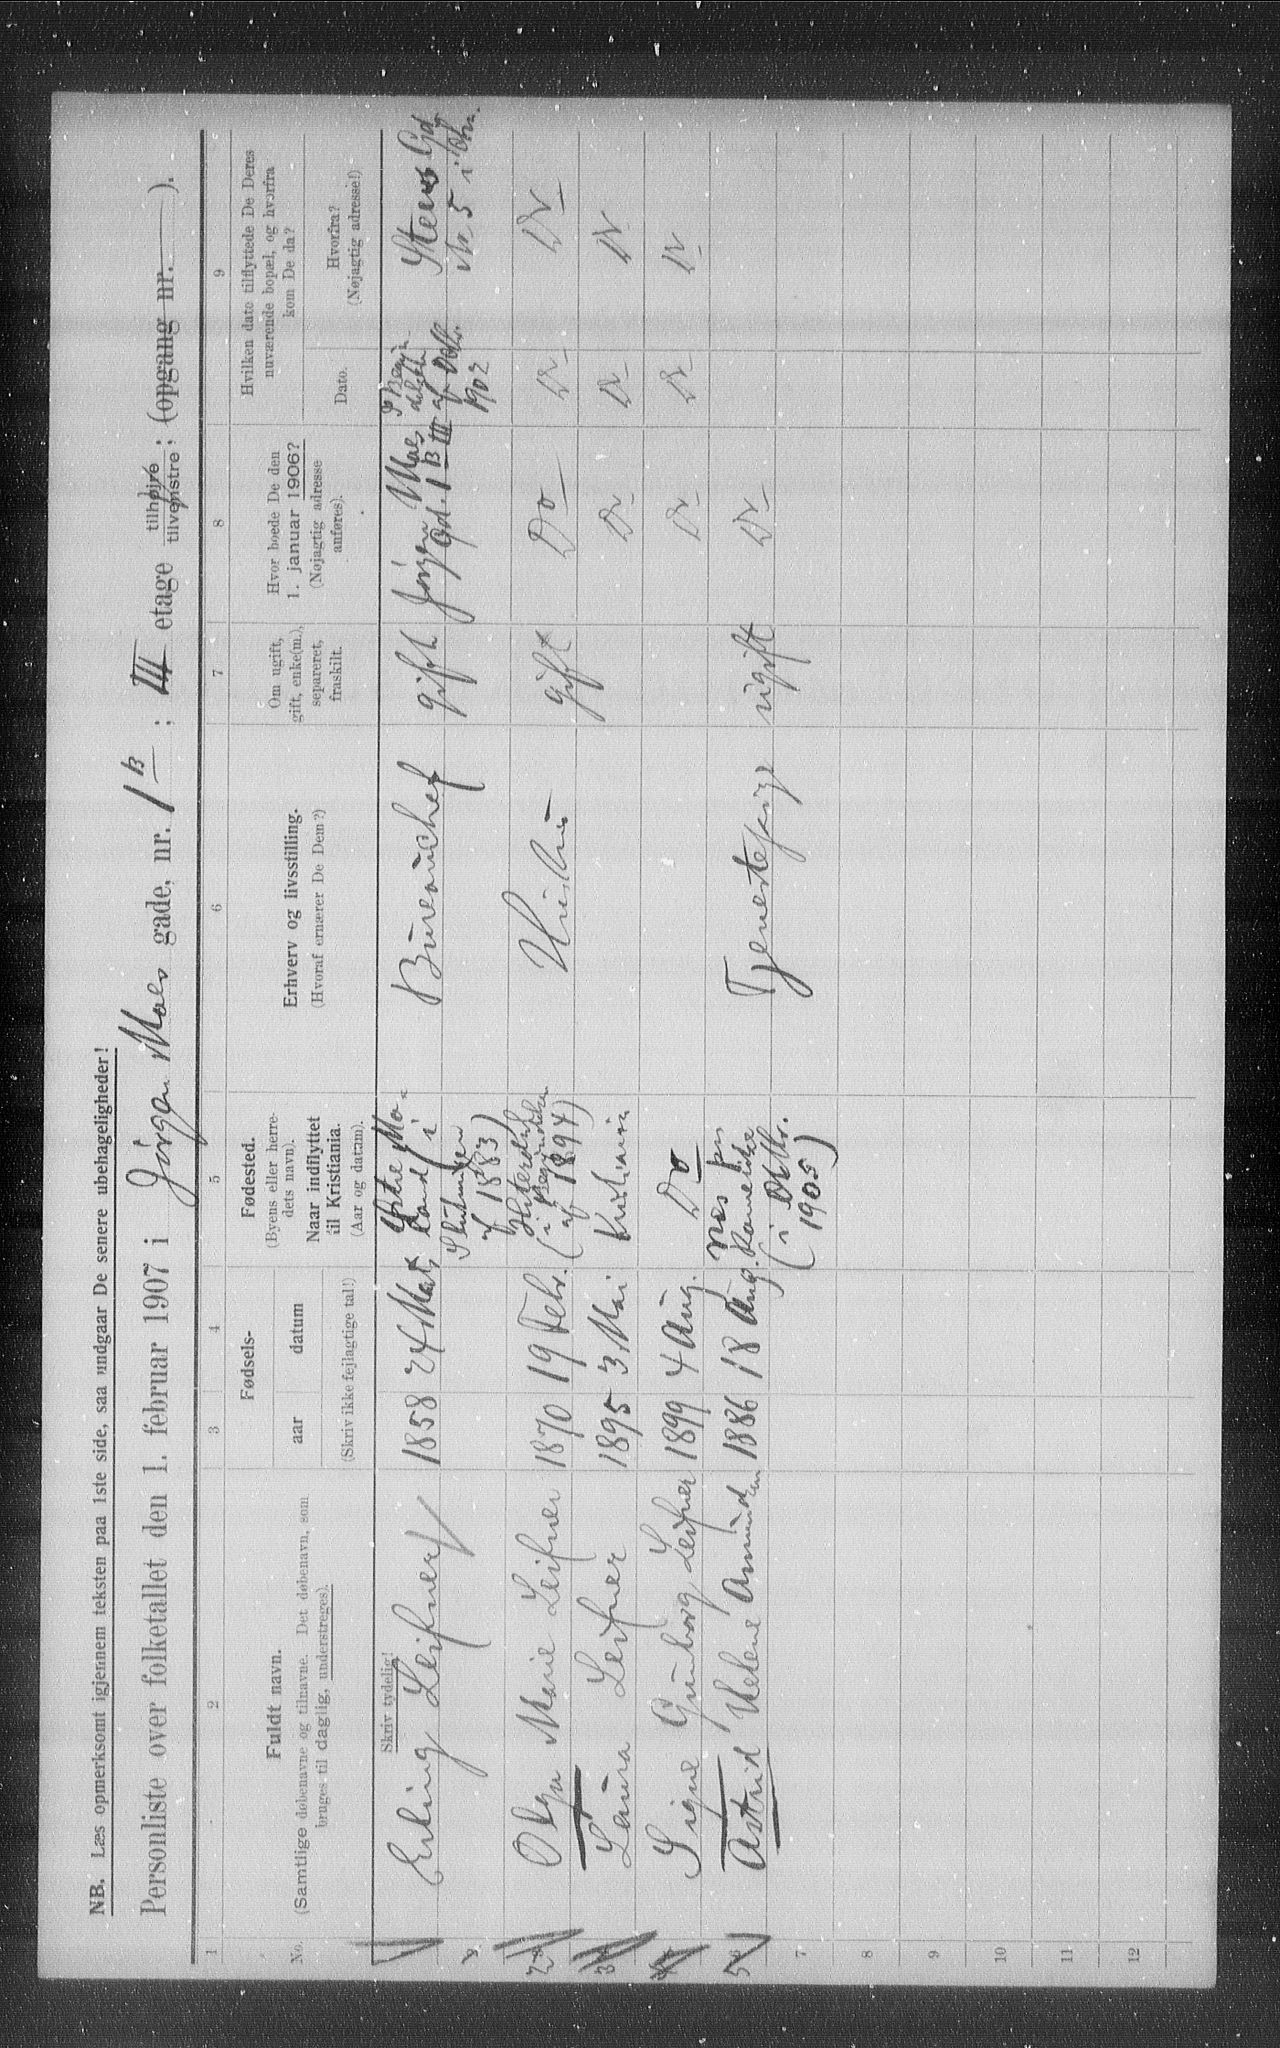 NB. Læs opmerksomt igjennem teksten paa 1ste side, saa undgaar De senere ubehageligheder!
Personliste over folketallet den 1. februar 1907 i Jørgen Moes gade, nr. 1 B; III etage tilhøjre / tilvenstre; (opgang nr. ).
1 2 3 4 5 6 7 8 9
No.
Fuldt navn.
(Samtlige døbenavne og tilnavne. Det døbenavn, som
bruges til daglig, understreges).
Fødsels-
aar datum
(Skriv ikke fejlagtige tal!)
Fødested.
(Byens eller herre-
dets navn).
Naar indflyttet
til Kristiania.
(Aar og datum).
Erhverv og livsstilling.
(Hvoraf ernærer De Dem?)
Om ugift,
gift, enke(m.),
separeret,
fraskilt.
Hvor boede De den
1. januar 1906?
(Nøjagtig adresse
anføres).
Hvilken dato tilflyttede De Deres
nuværende bopæl, og hvorfra
kom De da?
Dato.
Hvorfra?
(Nøjagtig adresse!)
Skriv tydelig!
Erling Leifner 1858 24 Mai, i af 1883) Bureauchef gift Jørgen Moes Gd. 1 B III af Oktbr. 1902 Stens Gd No 5 i Chra.
2 Olga Marie Leifner 1870 19 Febr. Hitterdal (i af 1894) Hustru gift Do Do Do
3 Laura Leifner 1895 3 Mai Kristiania Do Do Do
4 Signe Gunborg Leifner 1899 4 Aug. Do Do Do Do
5 Astrid Helene Amundsen 1886 18 Aug. Nes paa Romerike (i Oktbr. 1905) Tjenestepige ugift Do
7
8
9
10
11
12